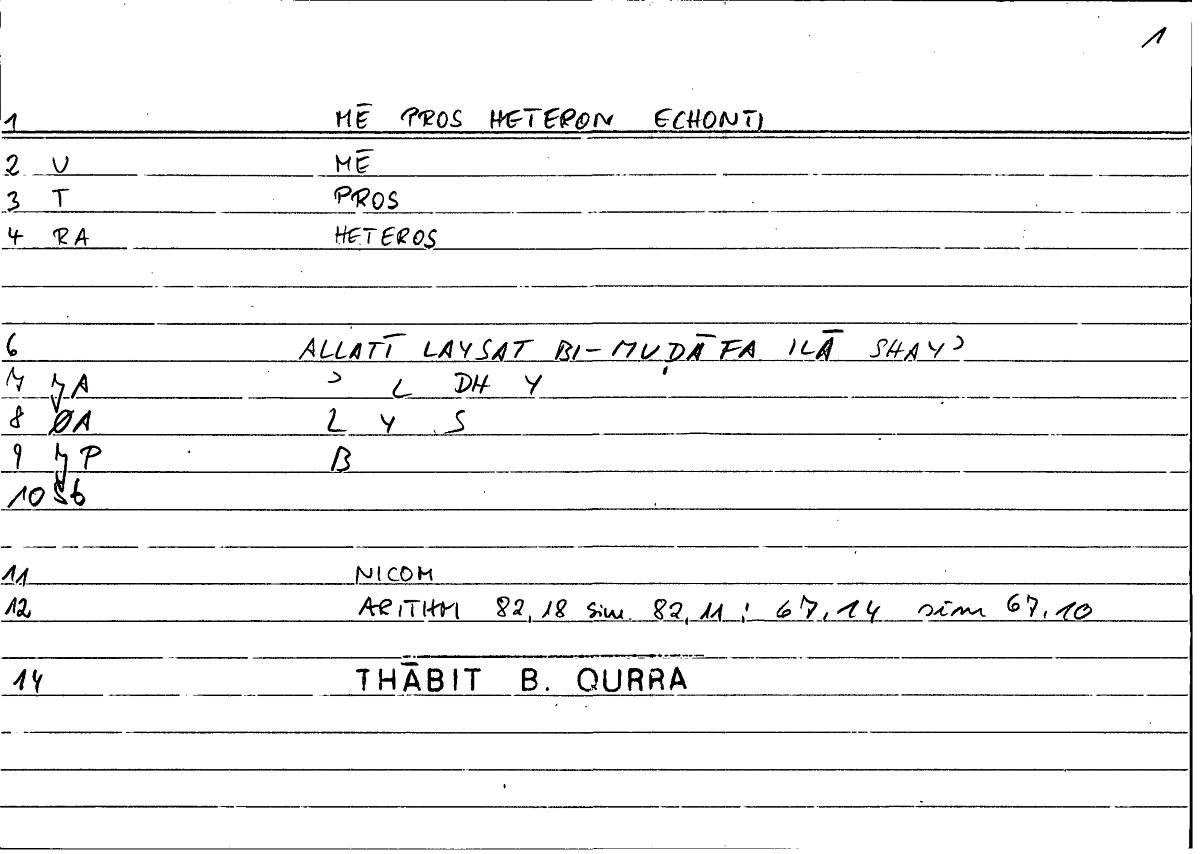 1
1 MĒ PROS HETERON ECHONTI
2 V MĒ
3 T PROS
4 RA HETEROS
6 ALLATĪ LAYSAT BI-MUḌĀFA ILĀ SHAYʾ
7 A ʾ L DH Y
8 ØA L Y S
9 P B
10 S6
11 NICOM
12 ARITHM 82,18 sim. 82,11 ; 67,14 sim 67,10
14 THĀBIT B. QURRA